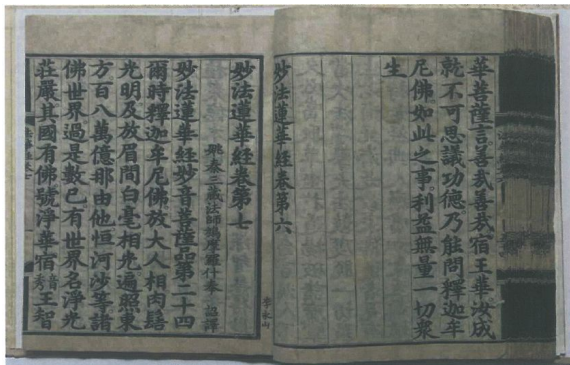 華菩薩言。善哉善哉。宿王華汝成
就不可思議功德。乃能問釋迦牟
尼佛如此之事。利益無量一切衆
生
妙法蓮華經卷第六
妙法蓮華經卷第七
姚秦三藏法師鳩摩羅什奉 詔譯
妙法蓮華經妙音菩薩品第二十四
爾時釋迦牟尼佛放大人相肉髻
光明及放眉間白毫相光遍照東
方百八萬億那由他恒河沙等諸
佛世界過是數已有世界名淨光
莊嚴其國有佛號淨華宿音秀王智